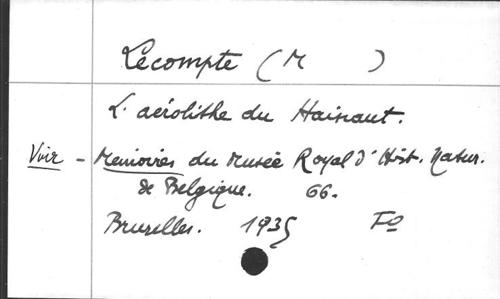 Lecompte (M )
L'aérolithe du Hainaut.
Voir - Memoires du Musée Royal d'Hist. Natur.
de Belgique. 66.
Bruxelles. 1935 Fo